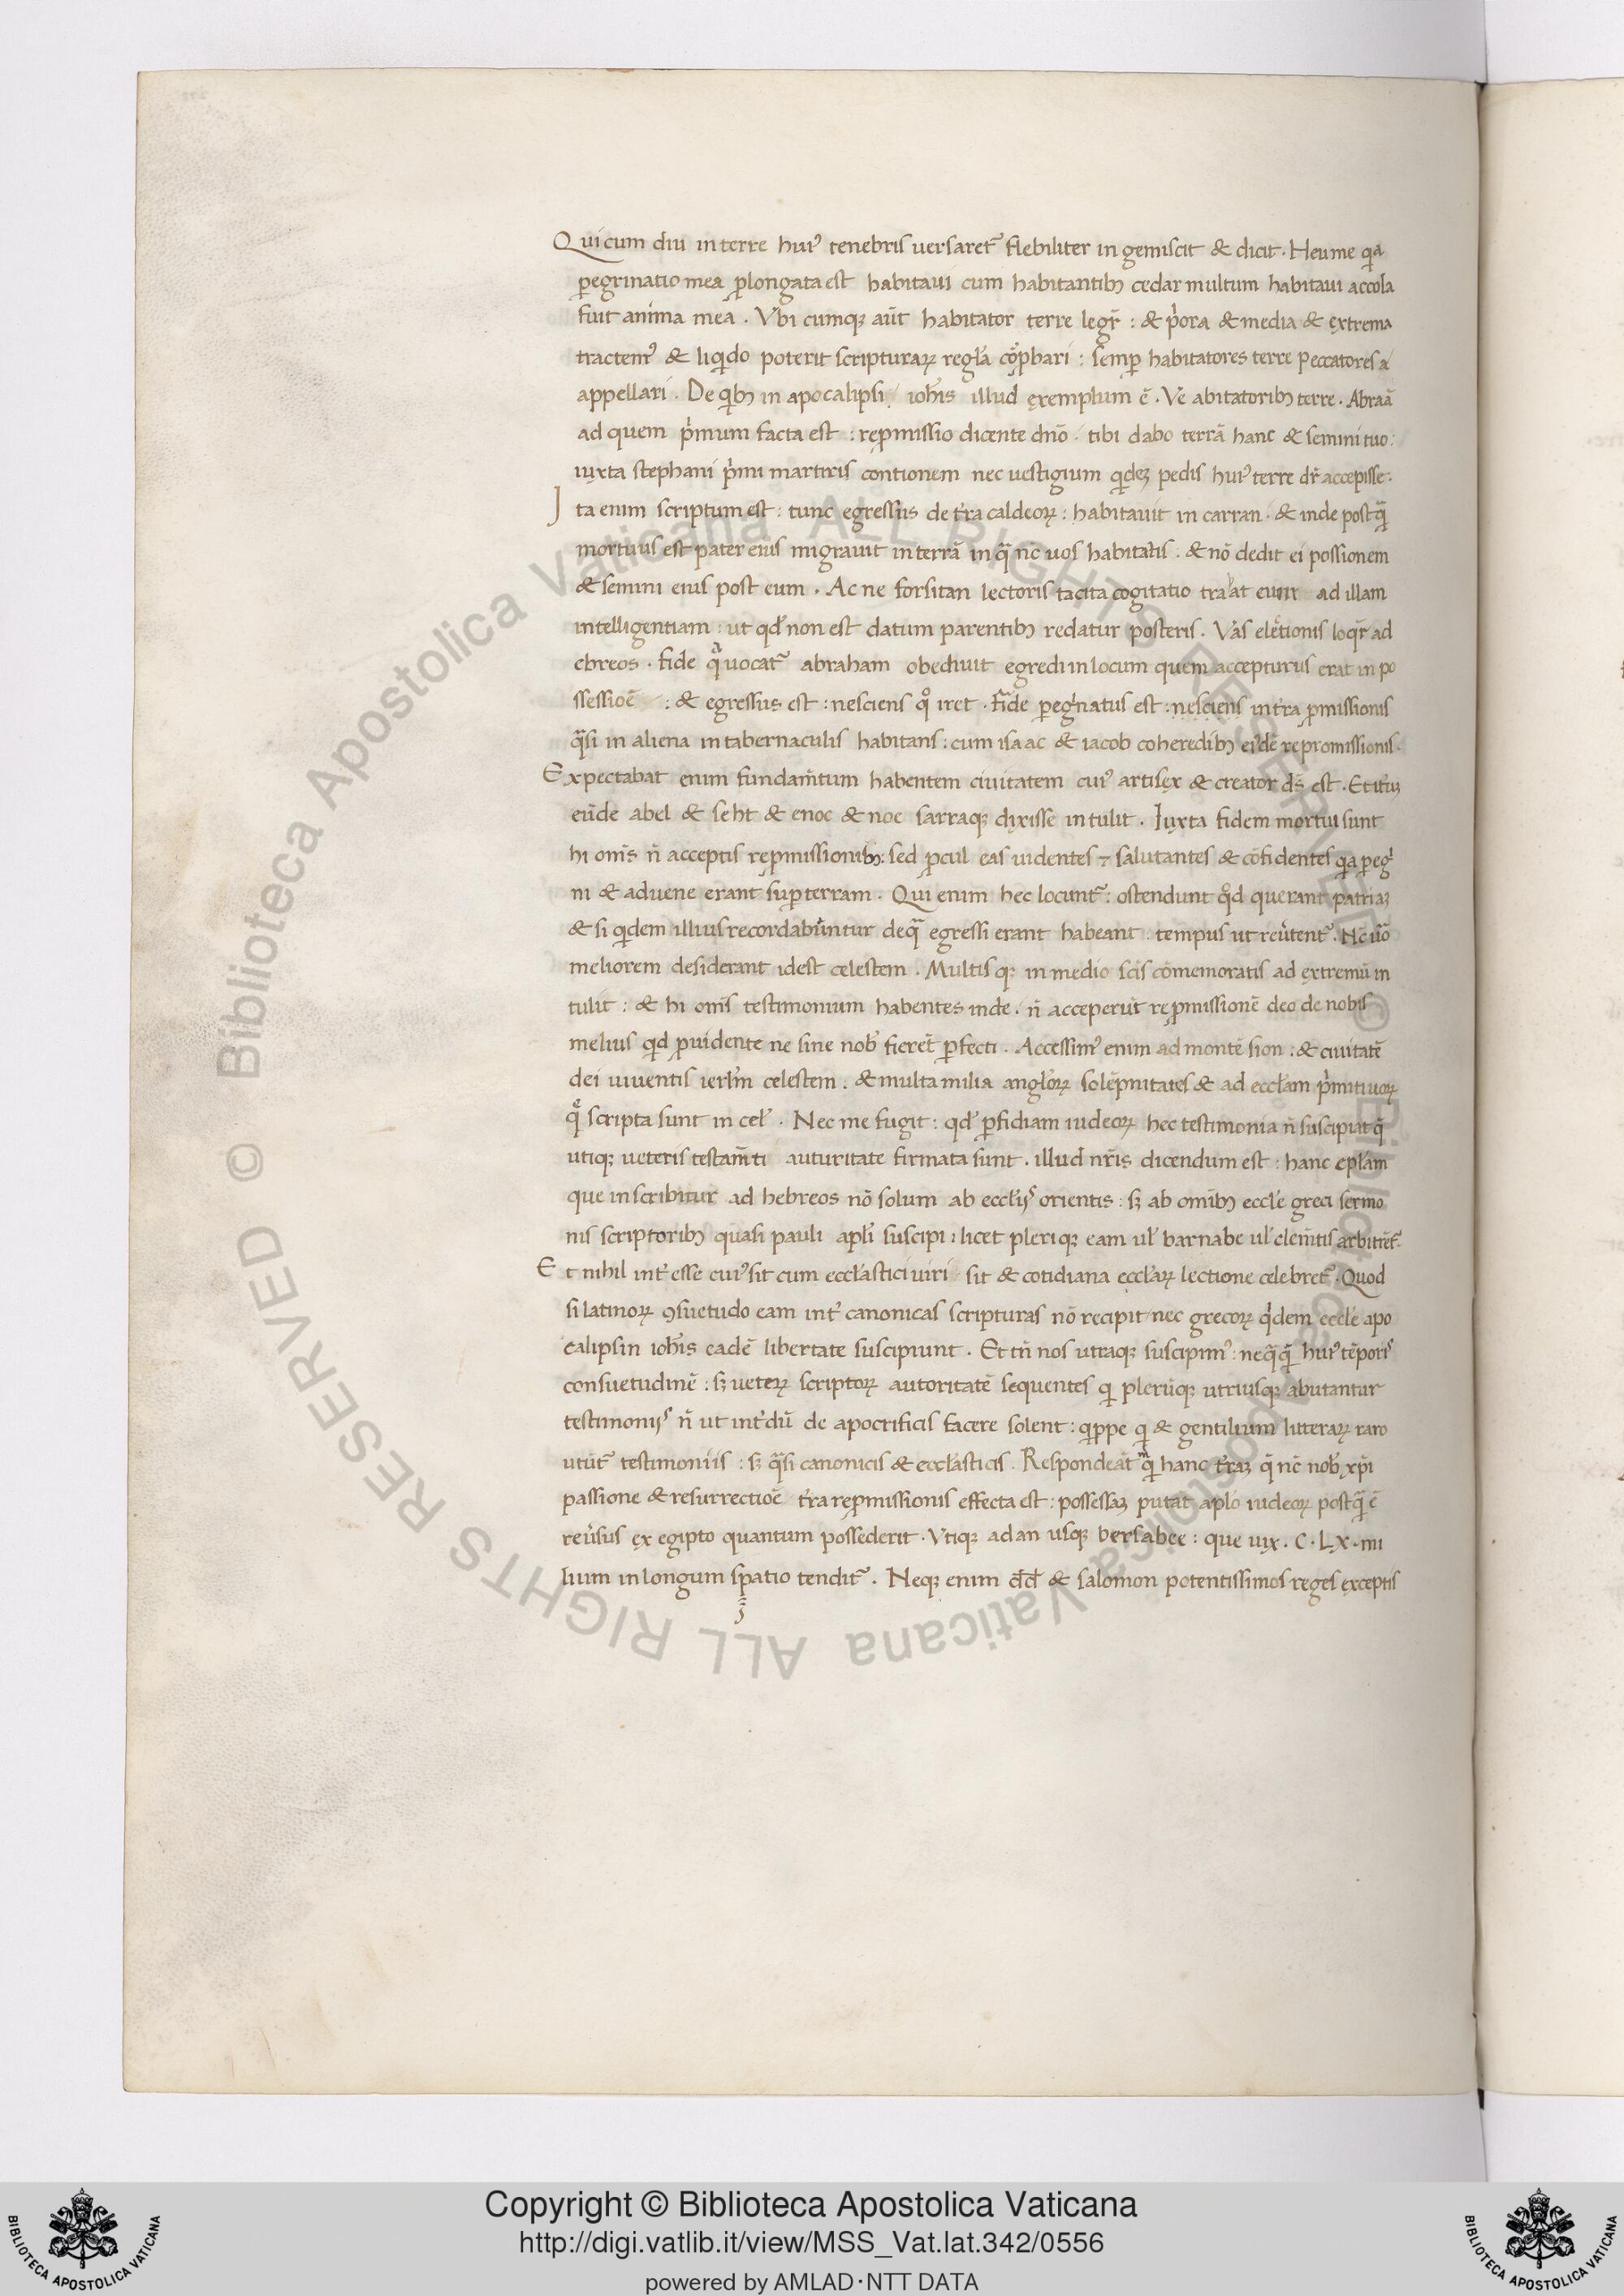 Qui cum diu in terre huiꝰ tenebris uersaret᷑ flebiliter in gemiscit & dicit . Heu me qͥa
ꝑegrinatio mea ꝓlongata est habitaui cum habitantibꝫ cedar multum habitaui accola
fuit anima mea . Vbi cumqꝫ aūt habitator terre legr̄ : & pͥora & media & extrema
tractemꝰ & liqͥdo poterit scripturaꝝ regl̄a cōꝓbari : semꝑ habitatores terre peccatores a
appellari . De qͥbꝫ in apocalipsi ioh̄is illud exemplum ē . Ve abitatoribꝫ terre . Abraā
ad quem pͥmum facta est : reꝓmissio dicente dn̄o . tibi dabo terrā hanc & semini tuo :
iuxta stephani pͥmi martiris contionem nec uestigium qͥdeꝫ pedis huiꝰ terre dr̄ accepisse .
Ita enim scriptum est : tunc egressus de tr̄a caldeoꝝ : habitauit in carran . & inde postqᷓ
mortuus est pater eius migrauit in terrā in qᷓ nc̄ uos habitatis . & nō dedit ei possionem
& semini eius post eum . Ac ne forsitan lectoris tacita cogitatio trahat eum ad illam
intelligentiam : ut qd̓ non est datum parentibꝫ redatur posteris . Vas elētionis loqͥr̄ ad
ebreos . fide qͥ uocat᷑ abraham obediuit egredi in locum quem accepturus erat in po
ssessioē : & egressus est : nesciens qͦ iret . fide ꝑegͥnatus est : nesciens in tr̄a ꝓmissionis
qᷓsi in aliena in tabernaculis habitans : cum isaac & iacob coheredibꝫ eiꝰdē repromissionis .
Expectabat enim fundam̄tum habentem ciuitatem cuiꝰ artifex & creator ds̄ est . Et itꝵꝫ
eūde abel & seht & enoc & noe sarraqꝫ dixisse intulit . Iuxta fidem mortui sunt
hi om̄s n̄ acceptis reꝓmissionibꝫ : sed ꝓcul eas uidentes ⁊ salutantes & cōfidentes qͥa ꝑegͥ
ni & aduene erant suꝑ terram . Qui enim hec locunt᷑ : ostendunt qͦd querant patriaꝫ
& si qͥdem illius recordabuntur de qᷓ egressi erant habeant : tempus ut reu̓tent᷑ . Nc̄ uͦo
meliorem desiderant idest celestem . Multis qꝫ in medio scīs cōmemoratis ad extremū in
tulit : & hi om̄s testimonium habentes inde . n̄ acceperūt reꝓmissionē deo de nobis
melius qͥd ꝓuidente ne sine nob̓ fieret̄ ꝑfecti . Accessimꝰ enim ad montē sion : & ciuitatē
dei uiuentis ierl̄m celestem . & multa milia angl̓oꝝ solēpnitates & ad eccl̄am pͥmitiuoꝝ
qͤ scripta sunt in cel̓ . Nec me fugit : qd̓ ꝑfidiam iudeoꝝ hec testimonia n̄ suscipiāt qͥ
utiqꝫ ueteris testam̄ti auturitate firmata sunt . illud nr̄is dicendum est : hanc epl̄am
que inscribitur ad hebreos nō solum ab eccl̓ijs orientis : sꝫ ab om̄ibꝫ eccl̓e greci sermo
nis scriptoribꝫ quasi pauli apl̓i suscipi : licet pleriqꝫ eam ul̓ barnabe ul̓ clem̄tis arbitrēt᷑ .
Et nihil int̓ esse cuiꝰ sit cum eccl̓astici uiri sit & cotidiana eccl̓aꝝ lectione celebret᷑ . Quod
si latinoꝝ ꝯsuetudo eam int̓ canonicas scripturas nō recipit nec grecoꝝ qͥdem eccl̓e apo
calipsin ioh̄is eadē libertate suscipiunt . Et tn̄ nos utraqꝫ suscipimꝰ : neqᷓqᷓ huiꝰ tēporiꝰ
consuetudinē : sꝫ ueteꝝ scriptoꝝ autoritatē sequentes qͥ pleru̅qꝫ utriusqꝫ abutantur
testimonijs n̄ ut int̓dū de apocrificis facere solent : qͥppe qͥ & gentilium litteraꝝ raro
utūt᷑ testimoniis : sꝫ qᷓsi canonicis & eccl̓asticis . Respondeāt qͥ hanc tr̄aꝫ qᷓ nc̄ nob̓ xp̄i
passione & resurrectioē tr̄a reꝓmissionis effecta est : possessaꝫ putāt aplo iudeoꝝ postqᷓ ē
reu̓sus ex egipto quantum possederit . Vtiqꝫ adan usqꝫ bersabee : que uix . C . LX . mi
lium in longum spatio tendit᷑ . Neqꝫ enim dd̄ & salomon potentissimos reges exceptis
Copyright © Biblioteca Apostolica Vaticana
http://digi.vatlib.it/view/MSS_Vat.lat.342/0556
powered by AMLAD·NTT DATA
BIBLIOTECA APOSTOLICA VATICANA
BIBLIOTECA APOSTOLICA VATICANA
© Biblioteca Apostolica Vaticana ALL RIGHTS RESERVED
© Biblioteca Apostolica Vaticana ALL RIGHTS RESERVED